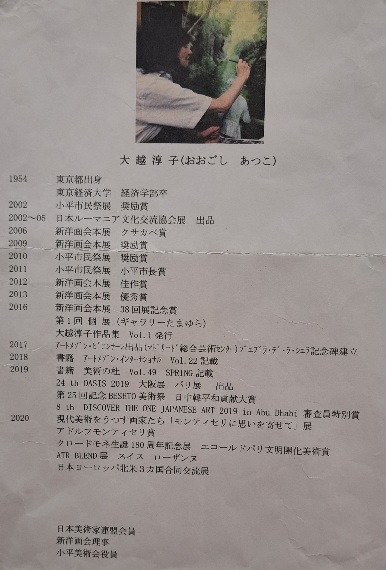 大 越 淳 子(おおごし　あつこ)
1954　東京都出身
東京経済大学　経済学部卒
2002　小平市民祭展　奨励賞
2002～05　日本ルーマニア文化交流協会展　出品
2006　新洋画会本展　クサカベ賞
2009　新洋画会本展　奨励賞
2010　小平市民祭展　奨励賞
2011　小平市民祭展　小平市長賞
2012　新洋画会本展　佳作賞
2013　新洋画会本展　優秀賞
2016　新洋画会本展　38回展記念賞
第1回 個 展（ギャラリーたまゆら）
大越淳子作品集　Vol.1発行
2017　アートメゾン・ビエンナーレ出品(マドリード総合芸術センター)プエブラ・デ・ラ・シエラ記念碑建立
2018　書籍　アートメゾン・インターナショナル　Vol.22記載
2019　書籍　美術の杜　Vol.49　SPRING記載
24 th OASIS 2019　大阪展　パリ展　出品
第25回記念BESETO美術祭　日中韓平和貢献大賞
8 th　DISCOVER THE ONE JAPANESE ART 2019 in Abu Dhabi 審査員特別賞
2020　現代美術をうつす画家たち「モンティセリに思いを寄せて」展
アドルフモンティセリ賞
クロードモネ生誕180周年記念展　エコールドパリ文明開化美術賞
ATR BLEND展　スイス　ローザンヌ
日本ヨーロッパ北米3カ国合同交流展
日本美術家連盟会員
新洋画会理事
小平美術会役員